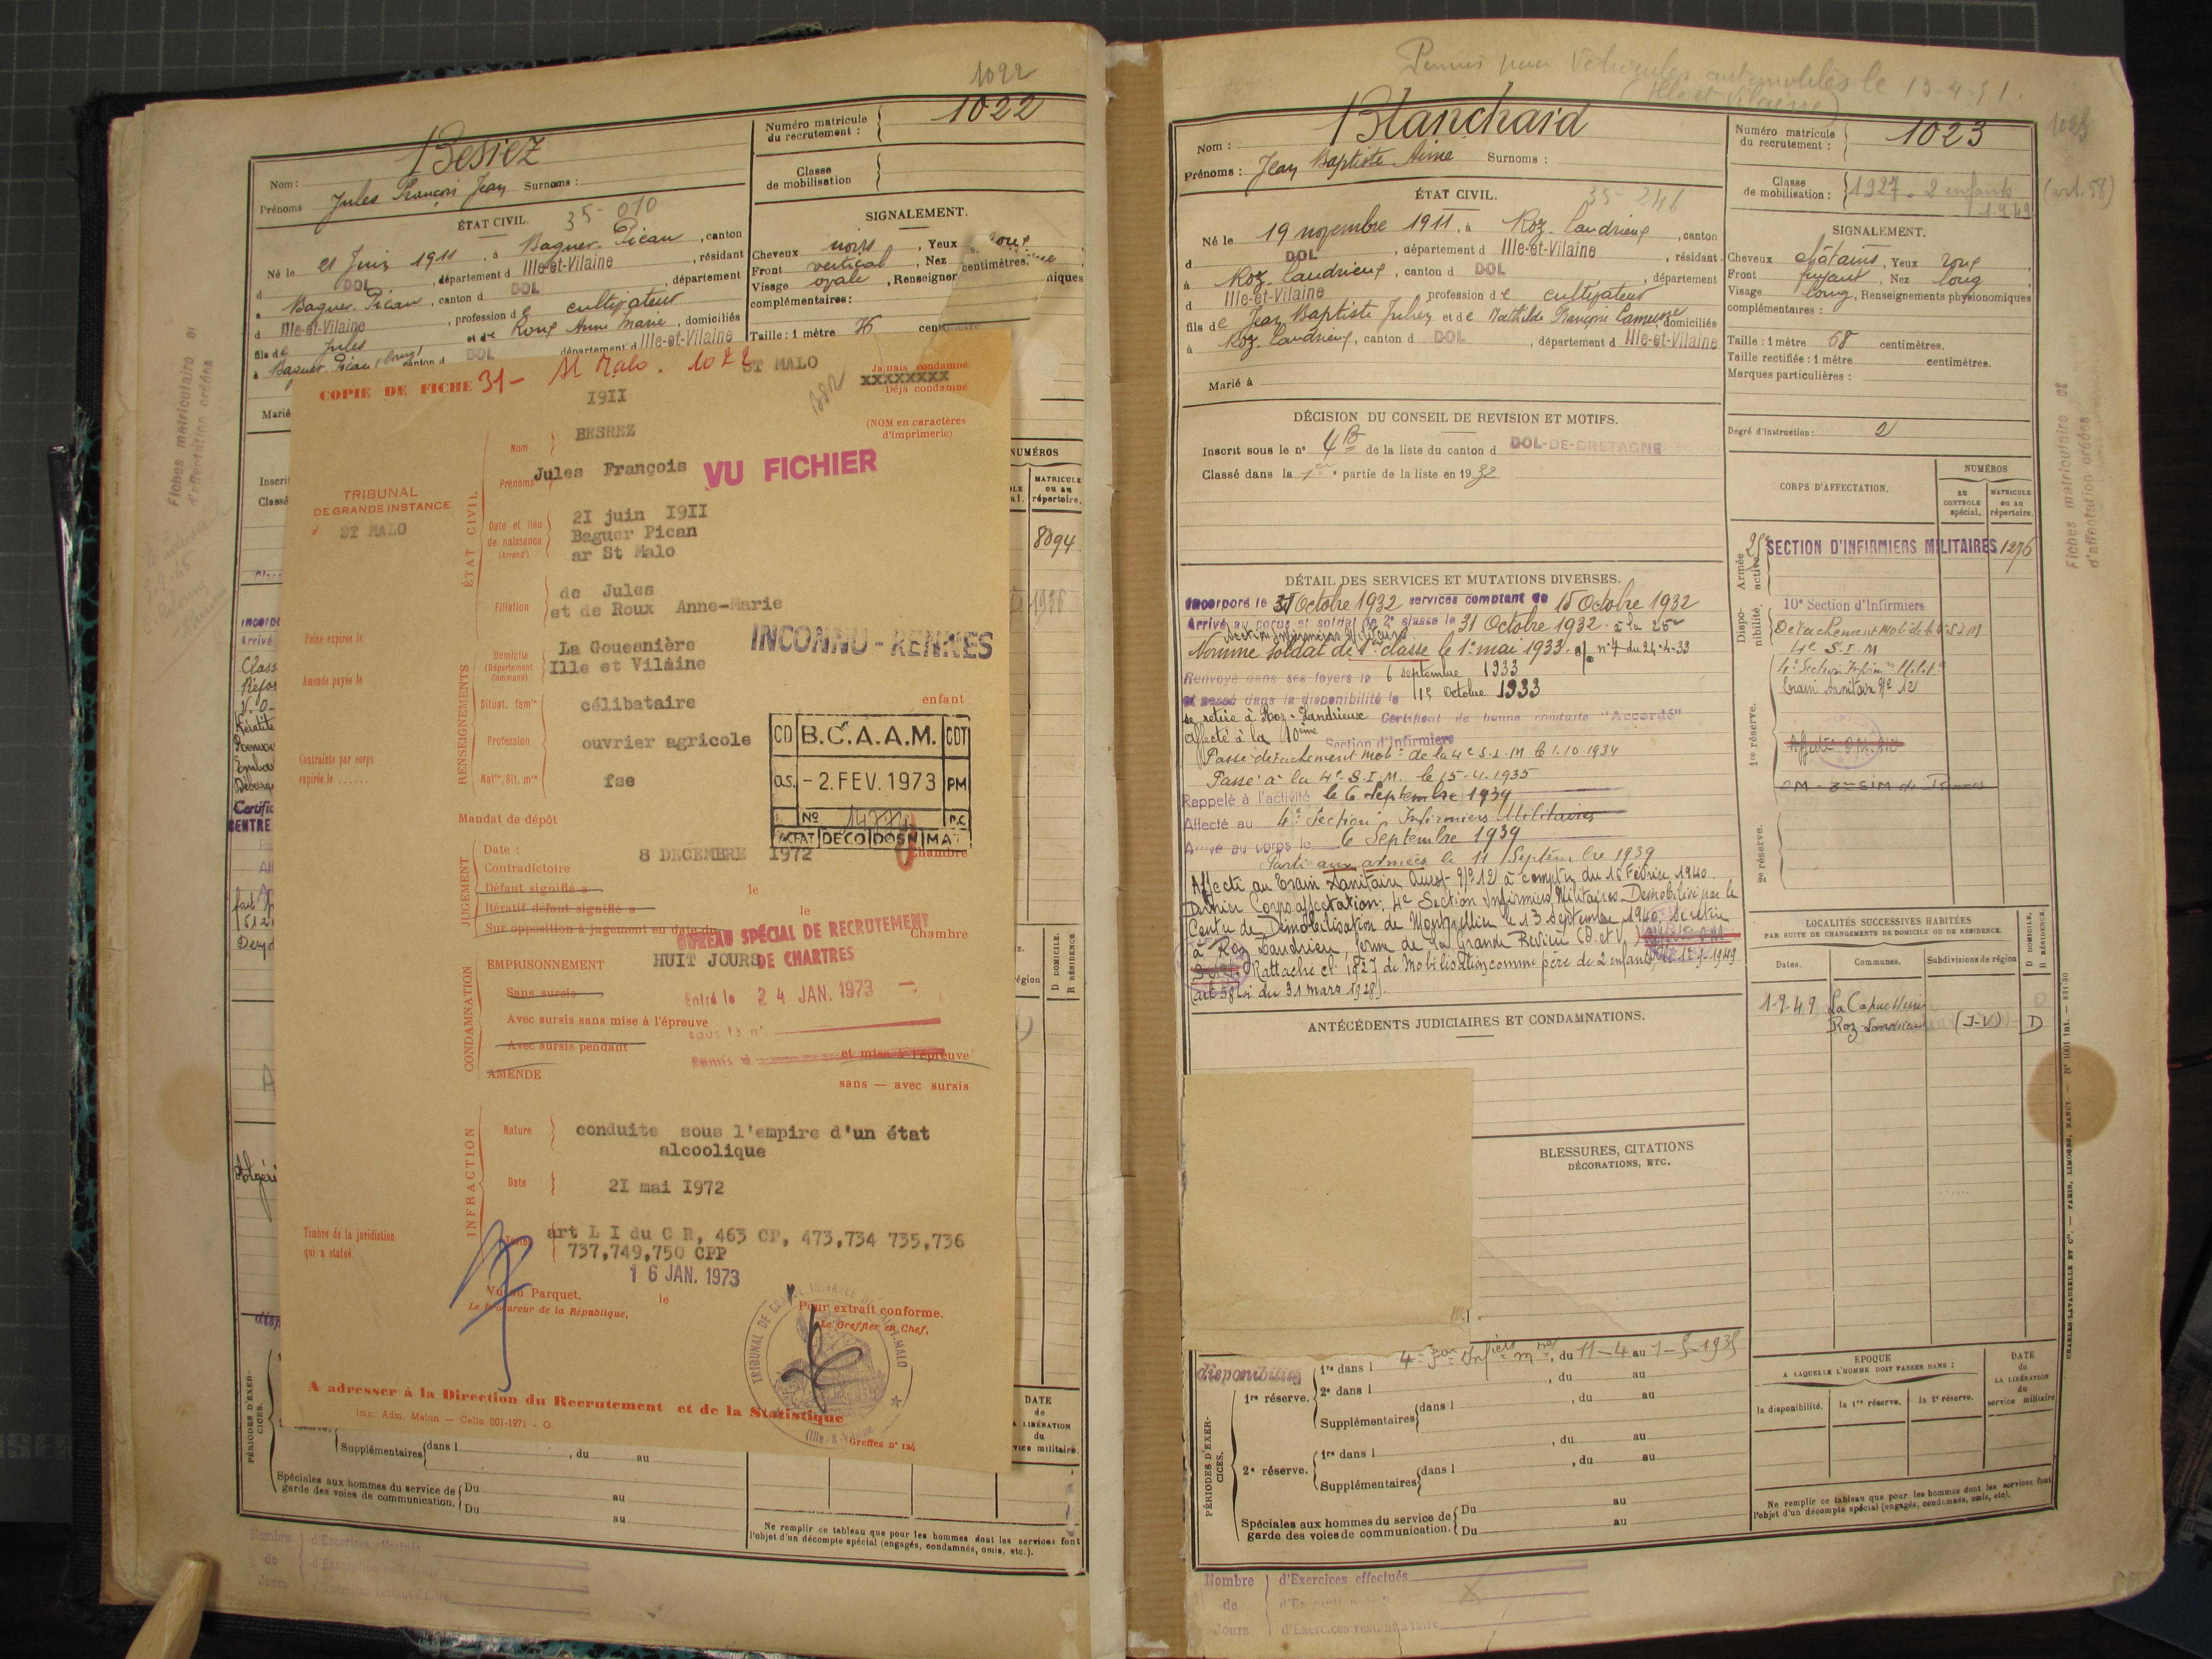 1022
Nom : Besrez
Prénoms Jules François Jean Surnoms :
Numéro matricule du recrutement : 1022
Classe de mobilisation
ÉTAT CIVIL. 35-010
Né le 21 Juin 1911, à Baguer-Pican, canton
d DOL, département d Ille-et-Vilaine, résidant
à Baguer-Pican, canton d DOL, département
d Ille-et-Vilaine, profession de cultivateur
fils de Jules et de Roux Anne Marie, domiciliés
à Baguer-Pican (bourg) canton d DOL département d Ille-et-Vilaine
Marié
SIGNALEMENT.
Cheveux noirs, Yeux roux
Front vertical, Nez
Visage ovale, Renseigner
complémentaires :
centimètres.
miques
Taille : 1 mètre 76
NUMÉROS
MATRICULE ou au répertoire.
8094
1936
Fiches matriculaire et d'affectation créées
COPIE DE FICHE 31- St Malo. 1022
ST MALO
Jamais condamné
xxxxxxxx
Déjà condamné
1911
(NOM en caractères d'imprimerie)
Nom BESREZ
Prénoms Jules François
VU FICHIER
TRIBUNAL
DE GRANDE INSTANCE
d ST MALO
ÉTAT CIVIL
Date et lieu de naissance (Arrondt)
21 juin 1911
Baguer Pican
ar St Malo
Filiation
de Jules
et de Roux Anne-Marie
Peine expirée le
INCONNU - RENNES
RENSEIGNEMENTS
Domicile (Département Commune)
La Gouesnière
Ille et Vilaine
Amende payée le
Situat. famle célibataire enfant
Profession ouvrier agricole
Natté, Sit. mre fse
Contrainte par corps
expirée le ......
CD B.C.A.A.M. CDT
a.s. - 2. FEV. 1973 PM
No P.C
DECO DOSN MAT
Mandat de dépôt
JUGEMENT
Date : 8 DECEMBRE 1972 Chambre
Contradictoire
Défaut signifié à le
Itératif défaut signifié à le
Sur opposition à jugement en date du Chambre
BUREAU SPÉCIAL DE RECRUTEMENT
DE CHARTRES
Entré le 24 JAN. 1973
sous le n°
CONDAMNATION
EMPRISONNEMENT HUIT JOURS
Sans sursis
Avec sursis sans mise à l'épreuve
Avec sursis pendant et mise à l'épreuve
AMENDE
sans — avec sursis
INFRACTION
Nature conduite sous l'empire d'un état
alcoolique
Date 21 mai 1972
Textes art L I du C R, 463 CP, 473,734 735,736
737,749,750 CPP
Timbre de la juridiction
qui a statué
16 JAN. 1973
Vu au Parquet, le
Le Procureur de la République,
Pour extrait conforme.
Le Greffier en Chef,
TRIBUNAL DE GRANDE INSTANCE DE SAINT-MALO
(Ille-&-Vilaine
A adresser à la Direction du Recrutement et de la Statistique
Imp. Adm. Melun — Cello 001-1971 - O.
Greffes n° 124
D DOMICILE.
R RÉSIDENCE
DATE
de
LA LIBÉRATION
du
service militaire.
PÉRIODES D'EXERCICES.
Supplémentaires dans l , du au
Spéciales aux hommes du service de garde des voies de communication. Du au
Du au
Ne remplir ce tableau que pour les hommes dont les services font
l'objet d'un décompte spécial (engagés, condamnés, omis, etc.).
Nombre de Jours
d'Exercices effectués
Permis pour Véhicules automobiles le 13-4-51.
(Ille et Vilaine)
1023
Nom : Blanchard
Prénoms : Jean Baptiste Aimé Surnoms :
Numéro matricule du recrutement : 1023
Classe de mobilisation : 1927 - 2 enfants (art. 58)
1.9.49
ÉTAT CIVIL. 35-246
Né le 19 novembre 1911, à Roz-Landrieux, canton
d DOL, département d Ille-et-Vilaine, résidant
à Roz-Landrieux, canton d DOL, département
d Ille-et-Vilaine profession de cultivateur
fils de Jean Baptiste Julien et de Mathilde Françoise Lamusse, domiciliés
à Roz-Landrieux, canton d DOL, département d Ille-et-Vilaine
Marié à
SIGNALEMENT.
Cheveux châtains, Yeux roux
Front fuyant, Nez long
Visage long, Renseignements physionomiques
complémentaires :
Taille : 1 mètre 68 centimètres.
Taille rectifiée : 1 mètre centimètres.
Marques particulières :
Degré d'instruction : 2
DÉCISION DU CONSEIL DE REVISION ET MOTIFS.
Inscrit sous le n° 4 B de la liste du canton d DOL-DE-BRETAGNE
Classé dans la 1ere partie de la liste en 1932
CORPS D'AFFECTATION.
NUMÉROS
au CONTROLE spécial.
MATRICULE ou au répertoire.
Armée active.
25e SECTION D'INFIRMIERS MILITAIRES 1276
Disponibilité.
10e Section d'Infirmiers
Détachement Mob. de la 4e S I M
4e S.I.M
1re réserve.
4e Section Infirm. Milit.
Train Sanitaire No 12
2e réserve.
DÉTAIL DES SERVICES ET MUTATIONS DIVERSES.
Incorporé le 31 Octobre 1932 services comptant du 15 Octobre 1932
Arrivé au corps et soldat de 2e classe le 31 Octobre 1932. à la 25e
Section Infirmiers Militaires
Nommé Soldat de 1ère classe le 1er mai 1933. o/ n° 7 du 24-4-33
Renvoyé dans ses foyers le 6 septembre 1933
et passé dans la disponibilité le 15 Octobre 1933
se retire à Roz-Landrieux Certificat de bonne conduite "Accordé"
Affecté à la 10ème Section d'Infirmiers
Passé détachement Mob. de la 4e S.I.M le 1.10.1934
Passé à la 4e S.I.M. le 15-4-1935
Rappelé à l'activité le 6 Septembre 1939
Affecté au 4e Section Infirmiers Militaires
Arrivé au corps le 6 Septembre 1939
Parti aux armées le 11 Septembre 1939
Affecté au Train Sanitaire Ouest No 12 à compter du 16 Février 1940.
Dernier Corps affectation: 4e Section Infirmiers Militaires. Démobilisé par le
Centre de Démobilisation de Montpellier le 13 Septembre 1940. Se retire
à Roz Landrieu, ferme de la Grande Rivière (I. et V.)
Rattaché cl. 1927 de Mobilisation comme père de 2 enfants, le 1-9-1949
(art 58 Loi du 31 mars 1928).
LOCALITÉS SUCCESSIVES HABITÉES
PAR SUITE DE CHANGEMENTS DE DOMICILE OU DE RÉSIDENCE.
Dates. Communes. Subdivisions de région D DOMICILE. R RÉSIDENCE.
1-9-49 Roz Landrieux (I-V) D
ANTÉCÉDENTS JUDICIAIRES ET CONDAMNATIONS.
BLESSURES, CITATIONS
DÉCORATIONS, ETC.
PÉRIODES D'EXERCICES.
disponibilité
1re réserve.
1re dans l 4e Son Infiers mres, du 11-4 au 1-5-1935
2e dans l , du au
Supplémentaires dans l , du au
2e réserve.
1re dans l , du au
Supplémentaires dans l , du au
Spéciales aux hommes du service de garde des voies de communication. Du au
Du au
EPOQUE
A LAQUELLE L'HOMME DOIT PASSER DANS :
la disponibilité. la 1re réserve. la 2e réserve.
DATE
de
LA LIBÉRATION
du
service militaire
Ne remplir ce tableau que pour les hommes dont les services font
l'objet d'un décompte spécial (engagés, condamnés, omis, etc).
CHARLES-LAVAUZELLE ET Cie. — PARIS, LIMOGES, NANCY. — N° 1001 int. — 831-30
Fiches matriculaire et d'affectation créées
Nombre de Jours
d'Exercices effectués
d'Exercices restant à faire